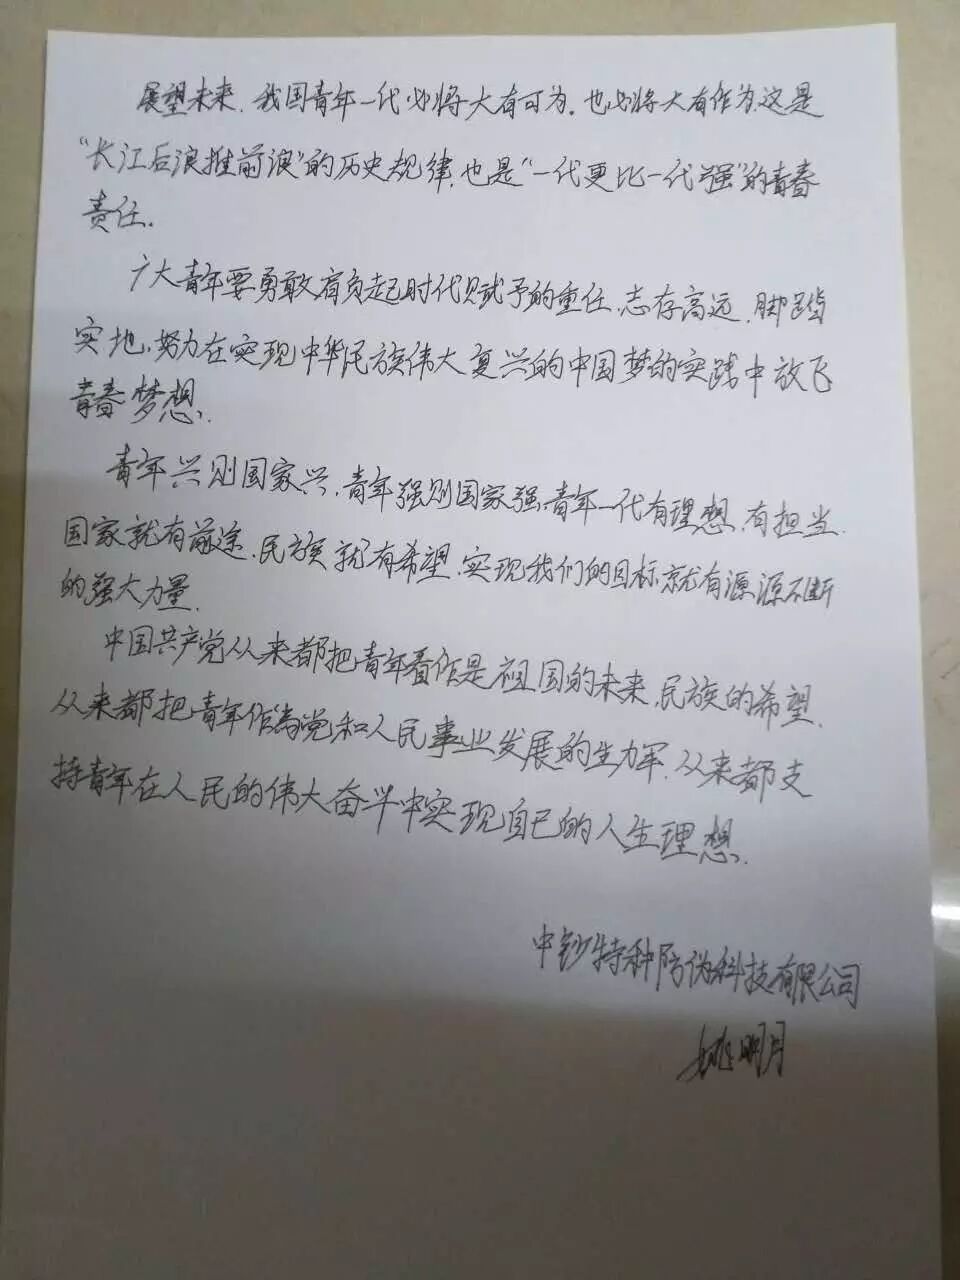 展望未来,我国青年一代必将大有可为,也必将大有作为,这是
“长江后浪推前浪”的历史规律,也是“一代更比一代强”的青春
责任.
广大青年要勇敢肩负起时代赋予的重任,志存高远,脚踏
实地,努力在实现中华民族伟大复兴的中国梦的实践中放飞
青春梦想.
青年兴则国家兴,青年强则国家强,青年一代有理想,有担当.
国家就有前途,民族就有希望,实现我们的目标就有源源不断
的强大力量.
中国共产党从来都把青年看作是祖国的未来,民族的希望.
从来都把青年作为党和人民事业发展的生力军,从来都支
持青年在人民的伟大奋斗中实现自己的人生理想.
中钞特种防伪科技有限公司
姚明月